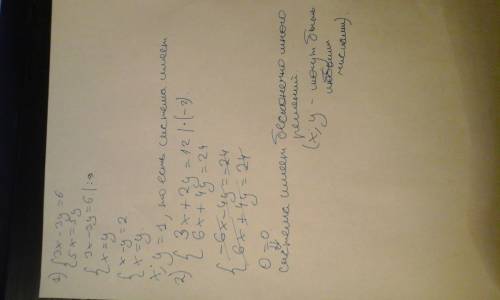 1) {3x-3y=6
{5x=5y
{3x-3y=6 |:3
{x=y
{x-y=2
{x=y
то есть система имеет
2) {3x+2y=12 |·(-2)
{6x+4y=24
{-6x-4y=-24
{6x+4y=24
0=0
система имеет бесконечно много
решений
(x; y - могут быть
любыми
числами).